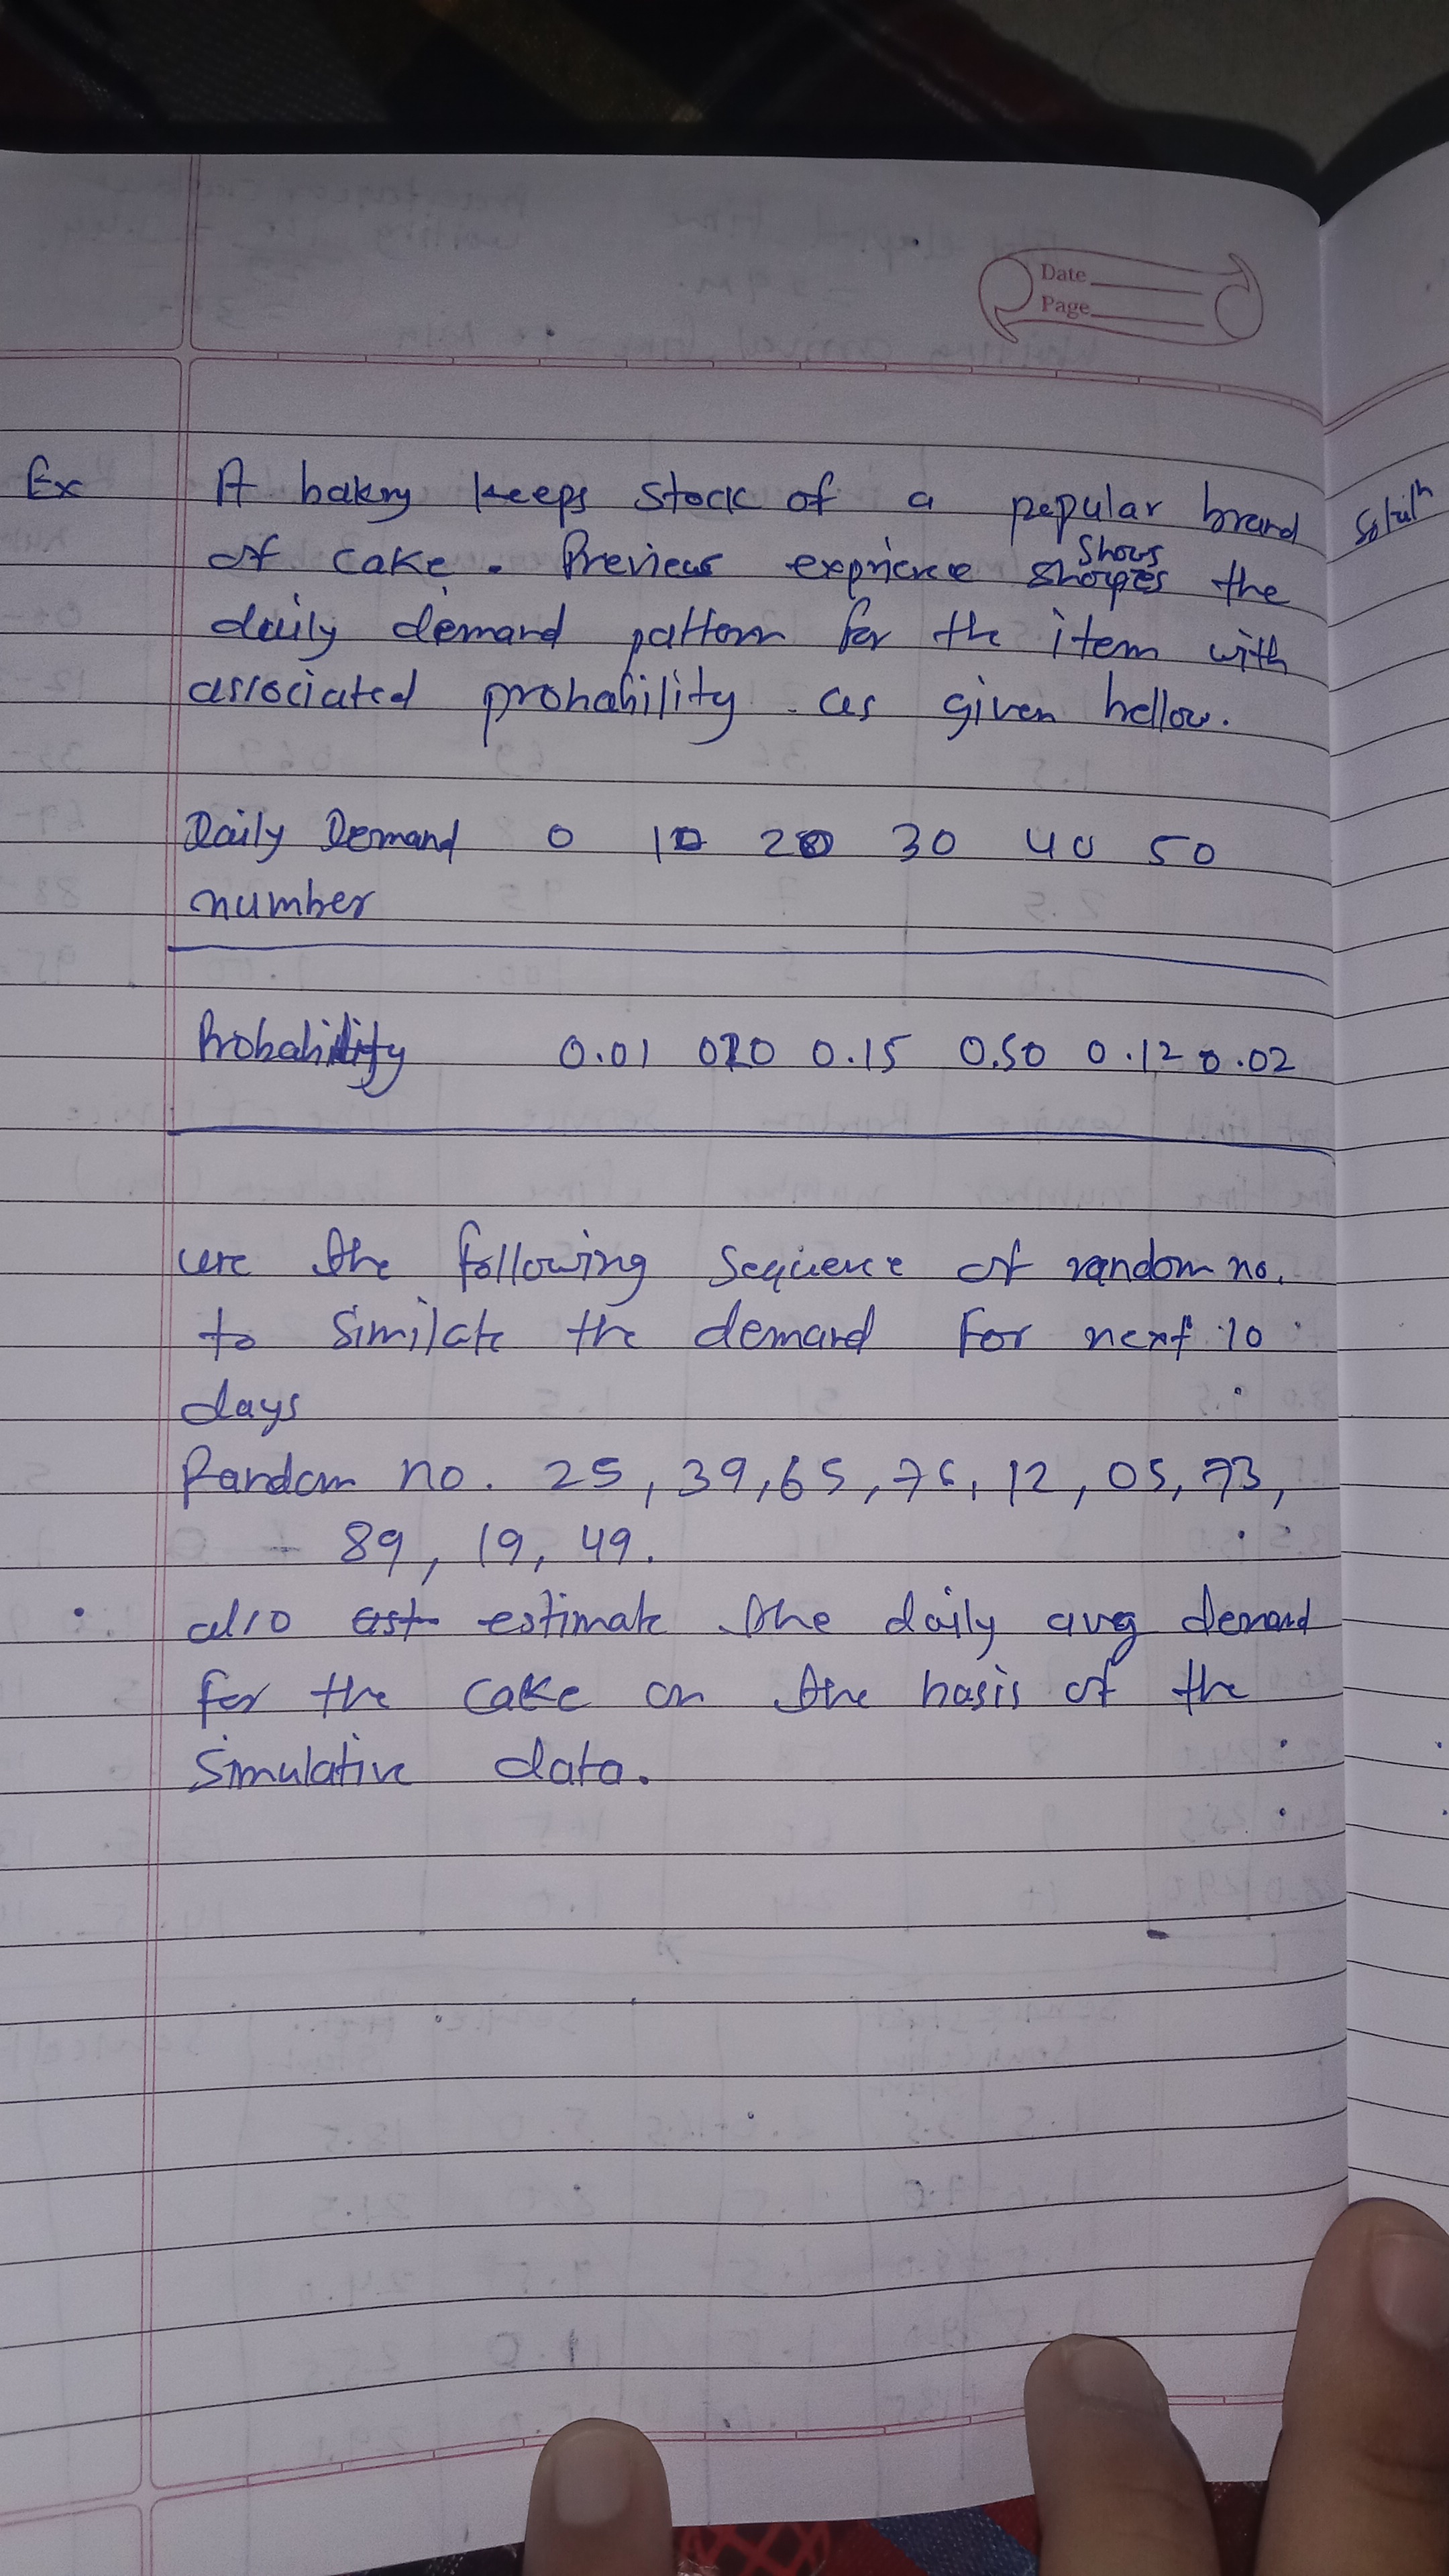 Date
Page
Ex A bakry keeps stock of a popular brand
of cake. Previous exprience shows the
daily demand pattern for the item with
associated probability as given bellow.
Daily Demand 0 10 20 30 40 50
number
Probability 0.01 020 0.15 0.50 0.12 0.02
use the following sequence of random no.
to similate the demand for next 10
days
Random no. 25, 39, 65, 76, 12, 05, 73,
89, 19, 49.
also estimate the daily avg demand
for the cake on the basis of the
Simulative data.